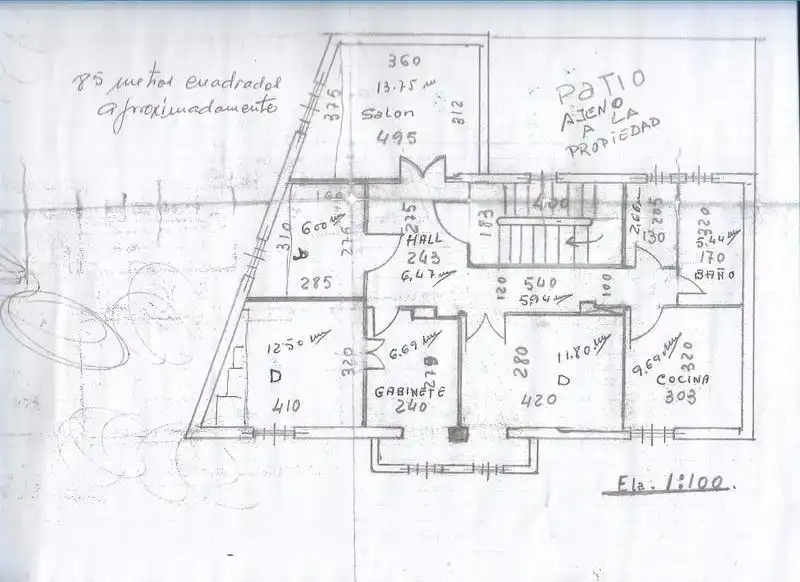 85 metros cuadrados
aproximadamente
360
13.75 m
375
Salon
312
495
PATIO
AJENO
A LA
PROPIEDAD
160
600 m
310
276
A
285
275
HALL
243
6,47 m
183
400
2,66 m
205
130
320
5.44 m
170
BAÑO
120
540
594 m
100
12.50 m
D
320
410
6.69 m
279
GABINETE
240
280
11.80 m
D
420
9,69 m
320
COCINA
303
Ela. 1:100.